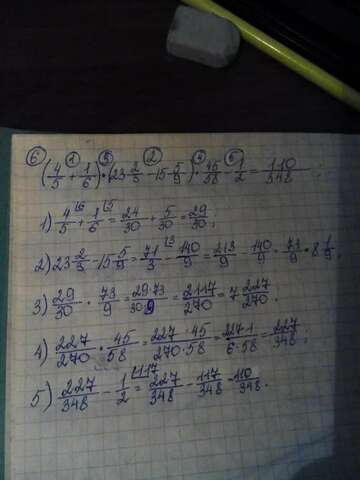 6) (4/5 + 1/6) · (23 2/3 - 15 5/9) · 45/58 - 1/2 = 110/348
1) 4/5 + 1/6 = 24/30 + 5/30 = 29/30;
2) 23 2/3 - 15 5/9 = 71/3 - 140/9 = 213/9 - 140/9 · 73/9 · 8 1/9;
3) 29/30 · 73/9 = 29·73/30·9 = 2117/270 = 7 227/270.
4) 227/270 · 45/58 = 227·45/270·58 = 227·1/6·58 = 227/348;
5) 227/348 - 1/2 = 227/348 - 117/348 110/348.